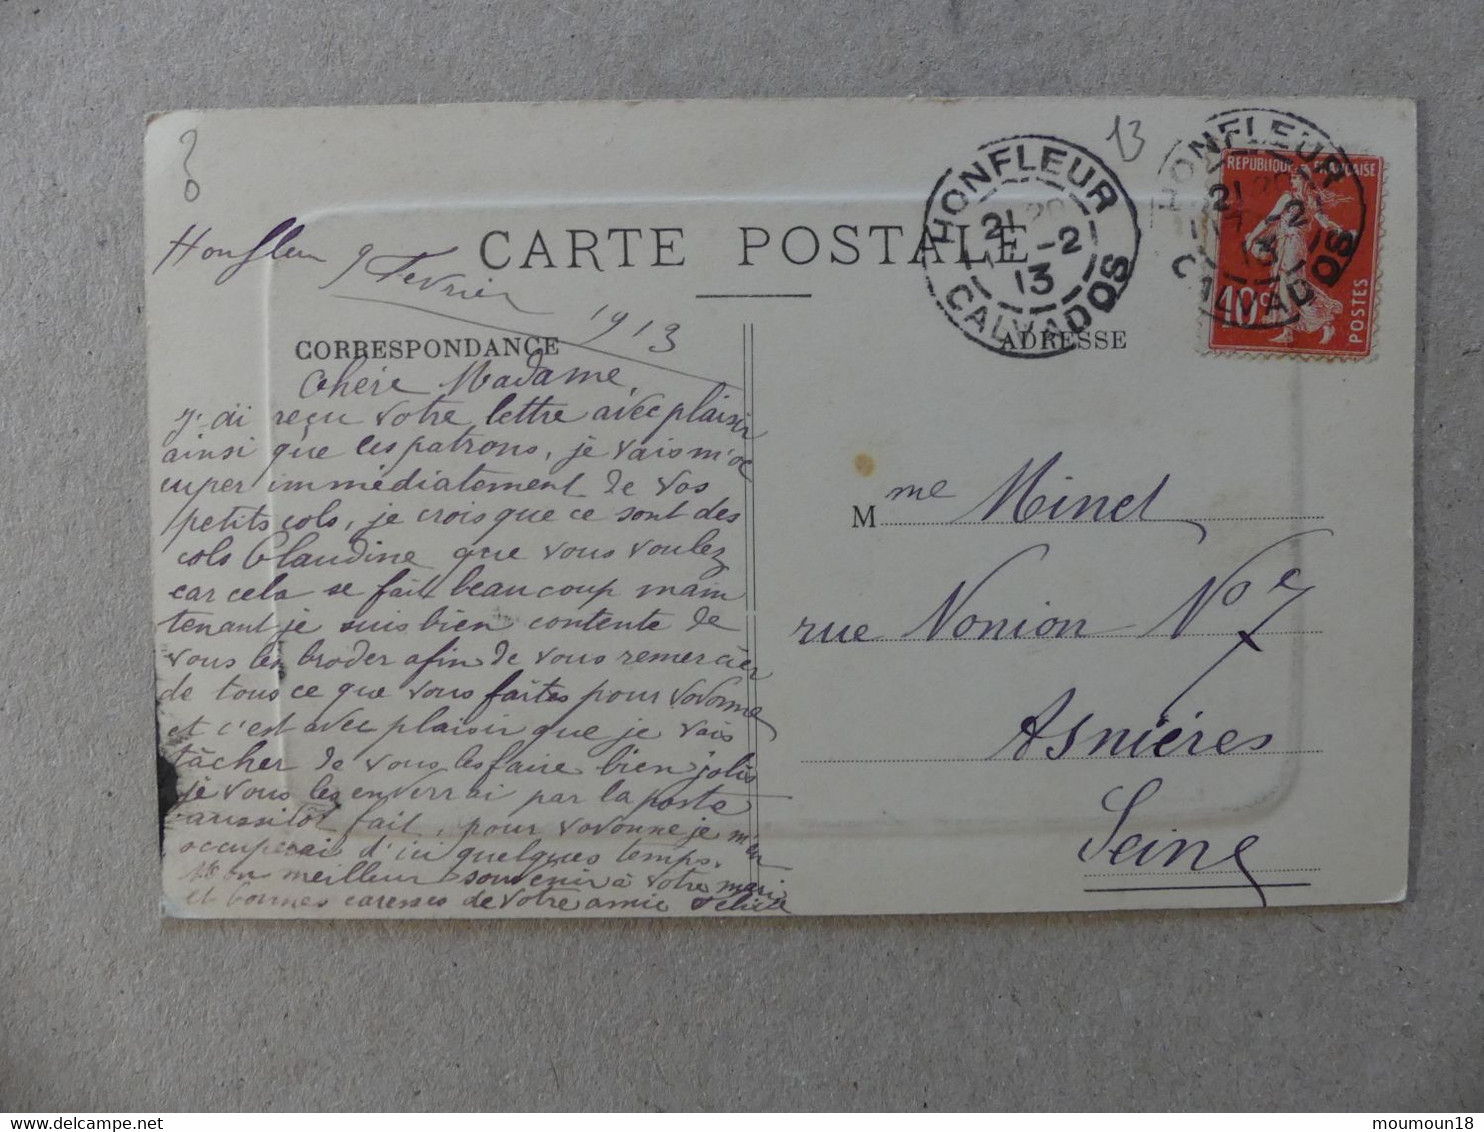 13
HONFLEUR
21 20
-2
13
CALVADOS
HONFLEUR
21
-2
13
CALVADOS
REPUBLIQUE FRANÇAISE
10c
POSTES
CARTE POSTALE
Honfleur 9 Fevrier 1913
CORRESPONDANCE
ADRESSE
Chére Madame,
j'ai reçu votre lettre avec plaisir
ainsi que les patrons, je vais m'oc
cuper immédiatement de vos
petits cols, je crois que ce sont des
cols Claudine que vous voulez
car cela se fait beaucoup main
tenant je suis bien contente de
vous les broder afin de vous remercier
de tous ce que vous faites pour Vovonne
et c'est avec plaisir que je vais
tâcher de vous les faire bien jolis
je vous les enverrai par la poste
aussitôt fait, pour Vovonne je m'en
occuperai d'ici quelques temps.
Mon meilleur souvenir à votre mari
et bonnes caresses de votre amie
M me Minet
rue Nonion No 7
Asniéres
Seine
moumoun18